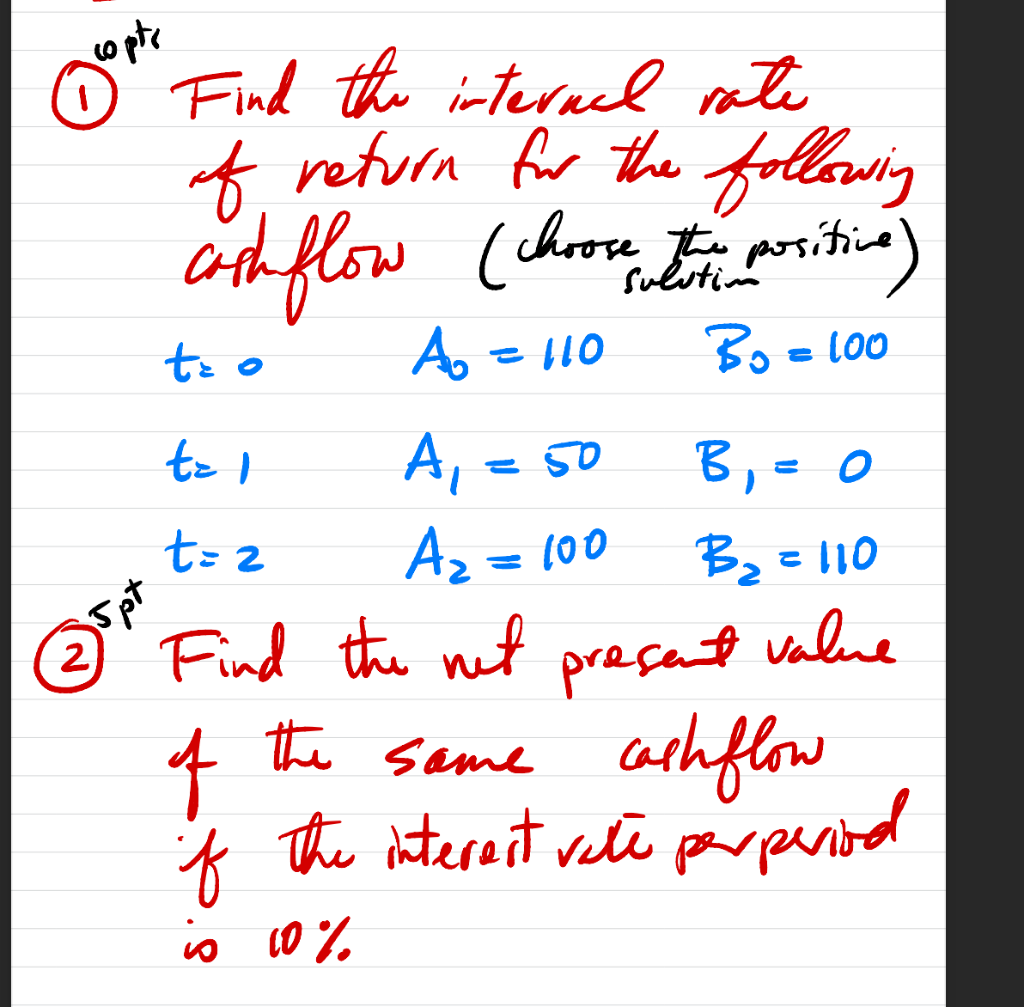 10 pts
① Find the internal rate
of return for the following
cashflow (choose the positive
solution)
t=0 A₀ = 110 B₀ = 100
t=1 A₁ = 50 B₁ = 0
t=2 A₂ = 100 B₂ = 110
5 pt
② Find the net present value
of the same cashflow
if the interest rate per period
is 10%